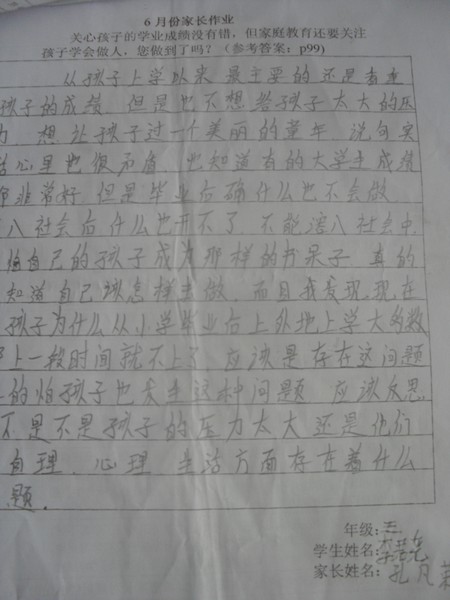 6 月份家长作业
关心孩子的学业成绩没有错，但家庭教育还要关注
孩子学会做人，您做到了吗？（参考答案：p99）
从孩子上学以来 最主要的还是看重
孩子的成绩 但是也不想给孩子太大的压
力 想让孩子过一个美丽的童年 说句实
话心里也很矛盾 也知道有的大学生成绩
非常好 但是毕业后确什么也不会做
入社会后什么也干不了 不能溶入社会中
怕自己的孩子成为那样的书呆子 真的
知道自己该怎样去做 而且我发现现在
孩子为什么从小学毕业后上外地上学大多数
上一段时间就不上了 应该是存在这问题
的怕孩子也发生这种问题 应该反思
不是不是孩子的压力太大还是他们
自理、心理 生活方面存在着什么
题.
年级：五
学生姓名：
家长姓名：孔凡